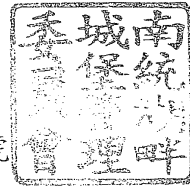 南統畔
城堡理
委員會